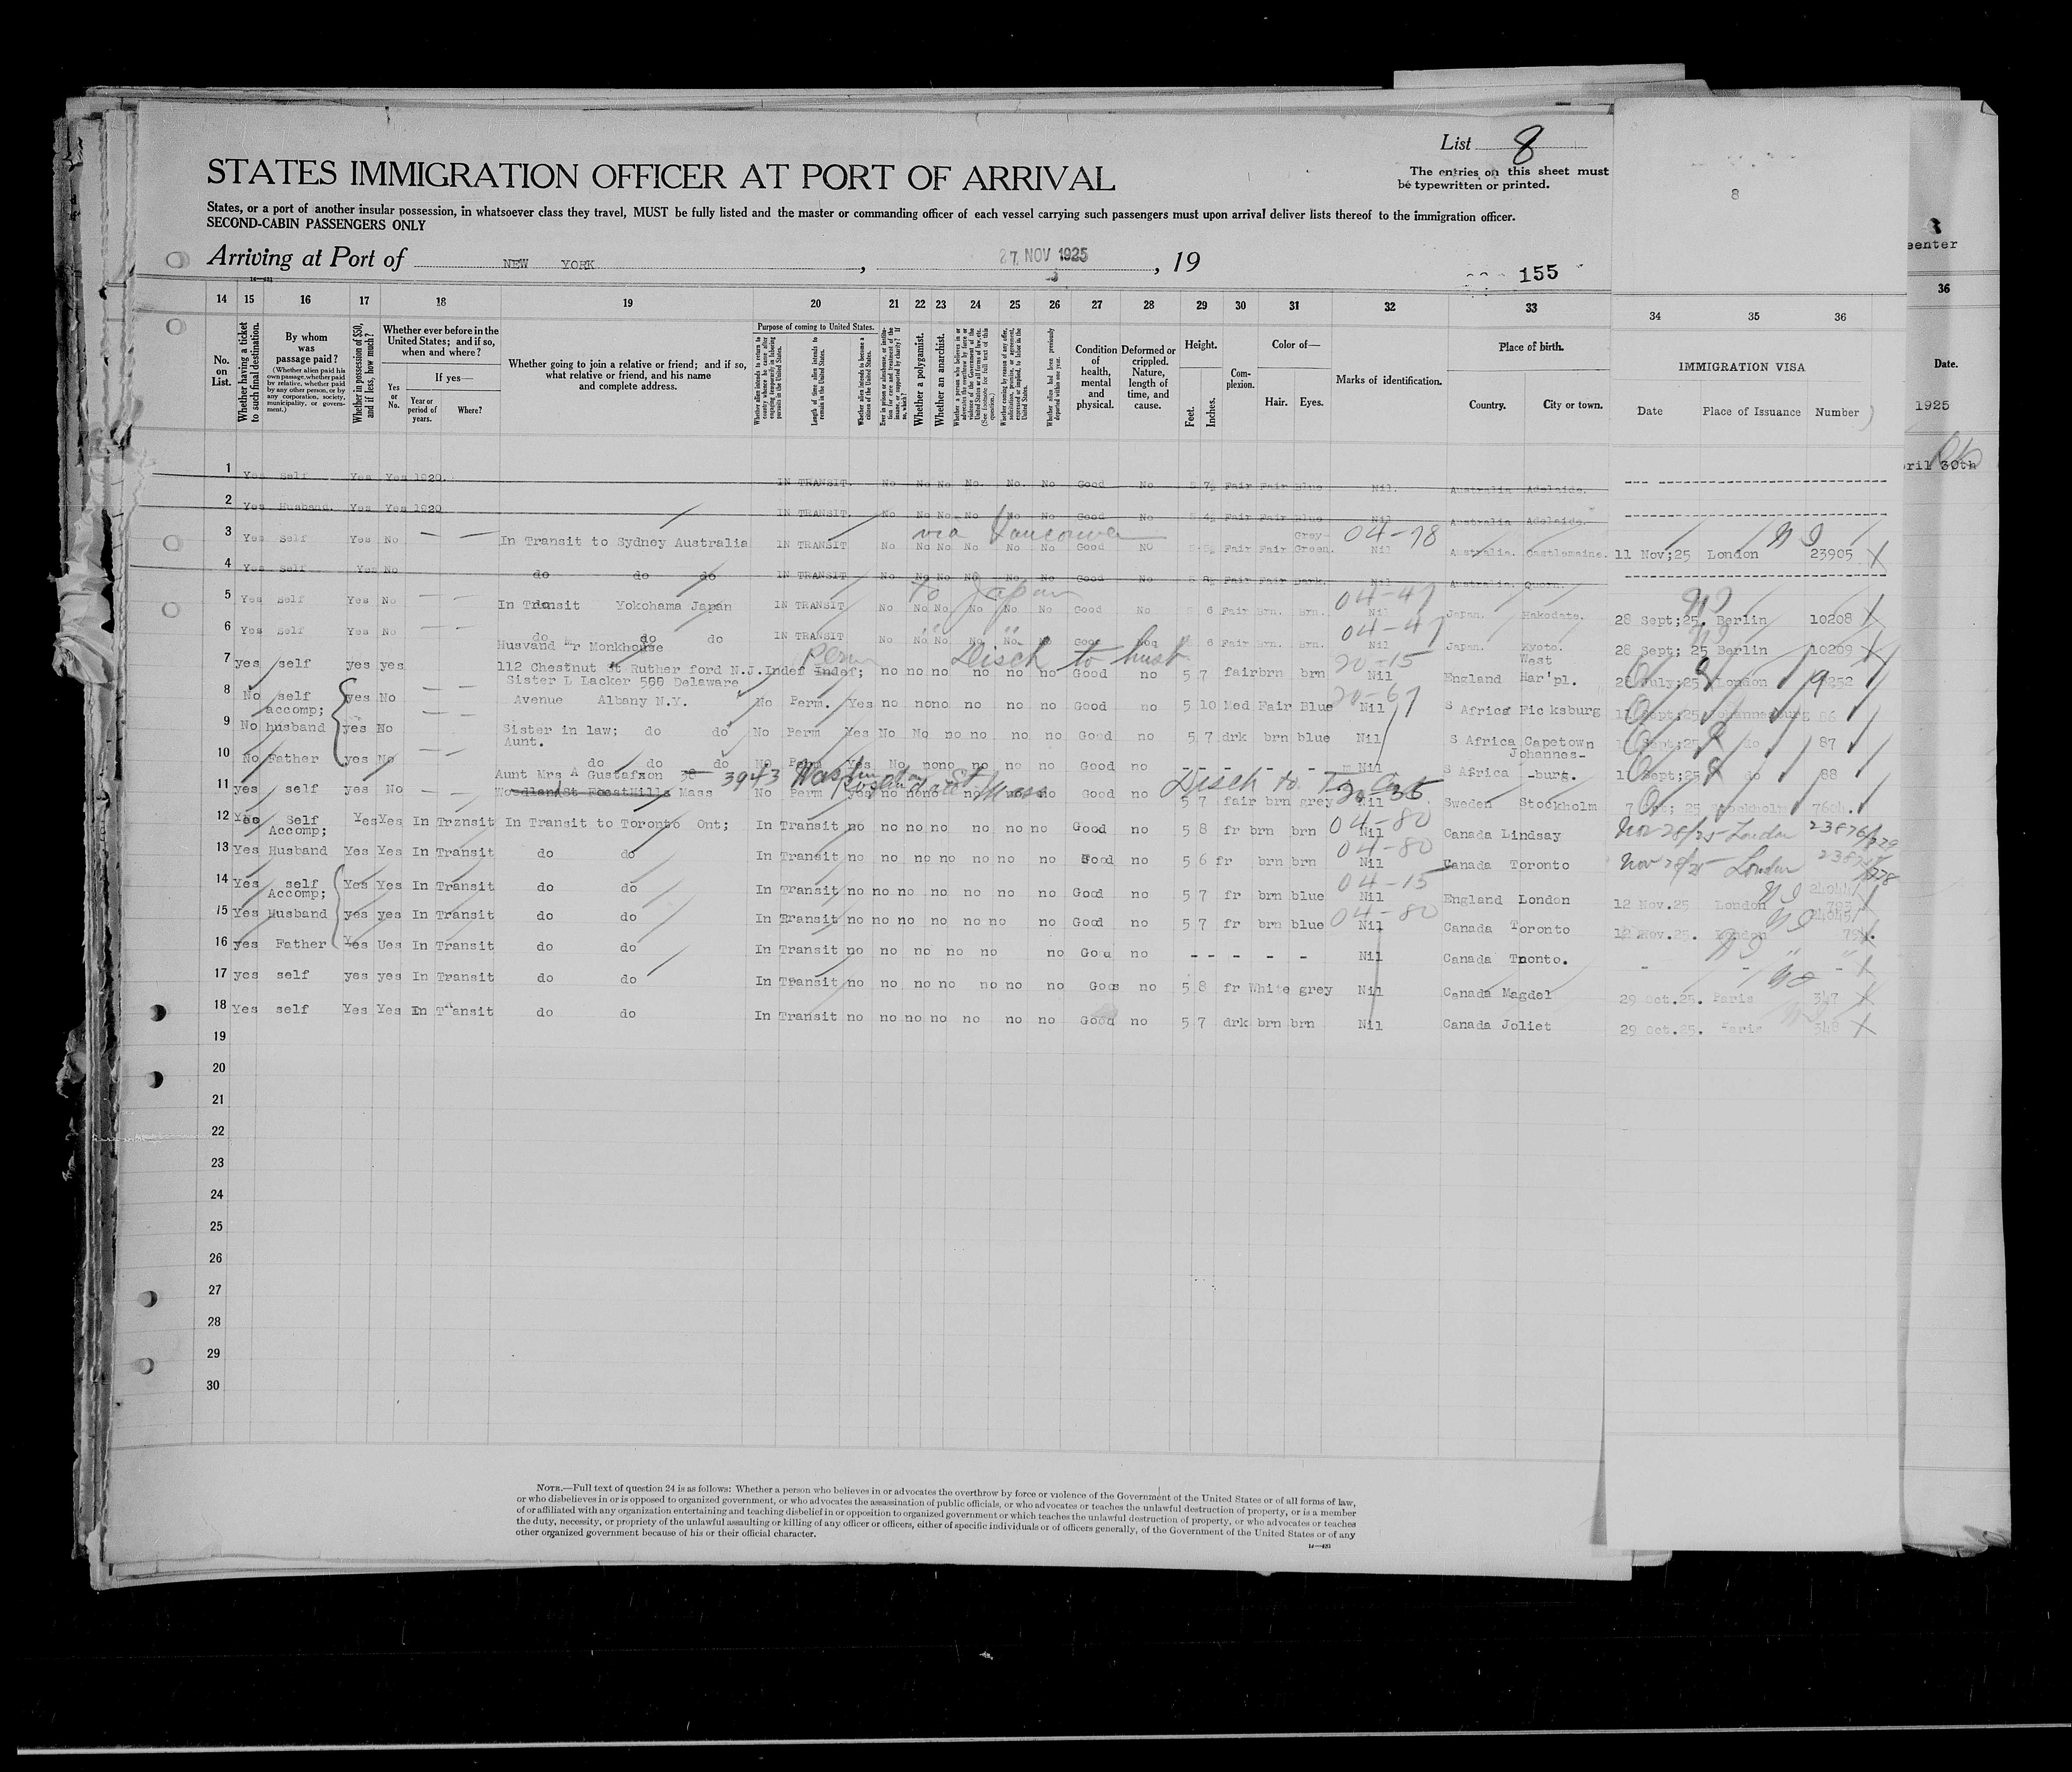 List 8
STATES IMMIGRATION OFFICER AT PORT OF ARRIVAL
The entries on this sheet must
be typewritten or printed.
8
States, or a port of another insular possession, in whatsoever class they travel, MUST be fully listed and the master or commanding officer of each vessel carrying such passengers must upon arrival deliver lists thereof to the immigration officer.
SECOND-CABIN PASSENGERS ONLY
Arriving at Port of NEW YORK , 27 NOV 1925 , 19
155
14 15 16 17 18 19 20 21 22 23 24 25 26 27 28 29 30 31 32 33 34 35 36
36
No. on List.
Whether having a ticket to such final destination.
By whom was passage paid?
(Whether alien paid his own passage, whether paid by relative, whether paid by any other person, or by any corporation, society, municipality, or government.)
Whether in possession of $50, and if less, how much?
Whether ever before in the United States; and if so, when and where?
Yes or No.
If yes—
Year or period of years.
Where?
Whether going to join a relative or friend; and if so, what relative or friend, and his name and complete address.
Purpose of coming to United States.
Length of time alien intends to remain in the United States.
Whether alien intends to become a citizen of the United States.
Whether a polygamist.
Whether an anarchist.
Condition of health, mental and physical.
Deformed or crippled. Nature, length of time, and cause.
Height.
Feet.
Inches.
Complexion.
Color of—
Hair.
Eyes.
Marks of identification.
Place of birth.
Country.
City or town.
IMMIGRATION VISA
Date Place of Issuance Number
Date.
1925
ril 30th
1 Yes Self Yes Yes 1920. IN TRANSIT. No No No No. No. No Good No Fair Fair Blue Nil. Australia Adelaide.
2 Yes Husband. Yes Yes 1920 IN TRANSIT. No No No. No No No Good No Fair Fair Blue Nil Australia Adelaide.
via Vancouver
3 Yes Self Yes No — — In Transit to Sydney Australia IN TRANSIT No No No No No No Good NO Fair Fair Grey Green. 04-78 Nil Australia. Castlemaine. 11 Nov;25 London 23905
4 Yes Self Yes No do do do IN TRANSIT No No No No No No Good No Fair Fair Dark. Nil Australia. Quorn.
to Japan
5 Yes Self Yes No — — In Transit Yokohama Japan IN TRANSIT No No No No No No Good No 6 Fair Brn. Brn. 04-47 Nil Japan. Hakodate. 28 Sept;25. Berlin 10208
6 Yes Self Yes No — — do do do IN TRANSIT No No No No No. No Good 6 Fair Brn. Brn. 04-47 Nil Japan. Kyoto. 28 Sept; 25 Berlin 10209
Husvand Mr Monkhouse
Perm Disch to husb
7 yes self yes yes 112 Chestnut st Ruther ford N.J. Indef Indef; no no no no no no Good no 5 7 fair brn brn 20-15 Nil England West Har'pl. July;25 London 9252
Sister L Lacker 500 Delaware
8 No self yes No — — Avenue Albany N.Y. No Perm. Yes no no no no no no Good no 5 10 Med Fair Blue 20-67 Nil S Africa Ficksburg Sept;25 Johannesburg 86
accomp;
9 No husband yes No — — Sister in law; do do No Perm Yes No No no no no no Good no 5 7 drk brn blue Nil S Africa Capetown Sept;25 do 87
Aunt.
10 No Father yes No — — do do do No Perm Yes No no no no no no Good no - - - - - Nil S Africa Johannes--burg. Sept;25 do 88
Aunt Mrs A Gustafson 38 3943 Washington St
Roslindale Mass Disch to
11 yes self yes No — — Woodland St Forest Hills Mass No Perm yes no no no no no no Good no 5 7 fair brn grey 20-35 Nil Sweden Stockholm 25 Stockholm
12 Yes Self Yes Yes In Trznsit In Transit to Toronto Ont; In Transit no no no no no no no Good no 5 8 fr brn brn 04-80 Nil Canada Lindsay Nov 28/25 London
Accomp;
13 Yes Husband Yes Yes In Transit do do In Transit no no no no no no no Good no 5 6 fr brn brn 04-80 Nil Canada Toronto Nov 28/25 London
14 Yes self Yes Yes In Transit do do In Transit no no no no no no no Good no 5 7 fr brn blue 04-15 Nil England London 12 Nov.25 London
Accomp;
15 Yes Husband yes yes In Transit do do In Transit no no no no no no no Good no 5 7 fr brn blue 04-80 Nil Canada Toronto 12 Nov.25. London
16 yes Father Yes Ues In Transit do do In Transit no no no no no no no Good no - - - - - Nil Canada Tnonto. - - -
17 yes self yes yes In Transit do do In Transit no no no no no no no Good no 5 8 fr White grey Nil Canada Magdel 29 Oct.25. Paris 347
18 Yes self Yes Yes In Transit do do In Transit no no no no no no no Good no 5 7 drk brn brn Nil Canada Joliet 29 Oct.25. Paris 348
19
20
21
22
23
24
25
26
27
28
29
30
NOTE.—Full text of question 24 is as follows: Whether a person who believes in or advocates the overthrow by force or violence of the Government of the United States or of all forms of law,
or who disbelieves in or is opposed to organized government, or who advocates the assassination of public officials, or who advocates or teaches the unlawful destruction of property, or is a member
of or affiliated with any organization entertaining and teaching disbelief in or opposition to organized government or which teaches the unlawful destruction of property, or who advocates or teaches
the duty, necessity, or propriety of the unlawful assaulting or killing of any officer or officers, either of specific individuals or of officers generally, of the Government of the United States or of any
other organized government because of his or their official character.